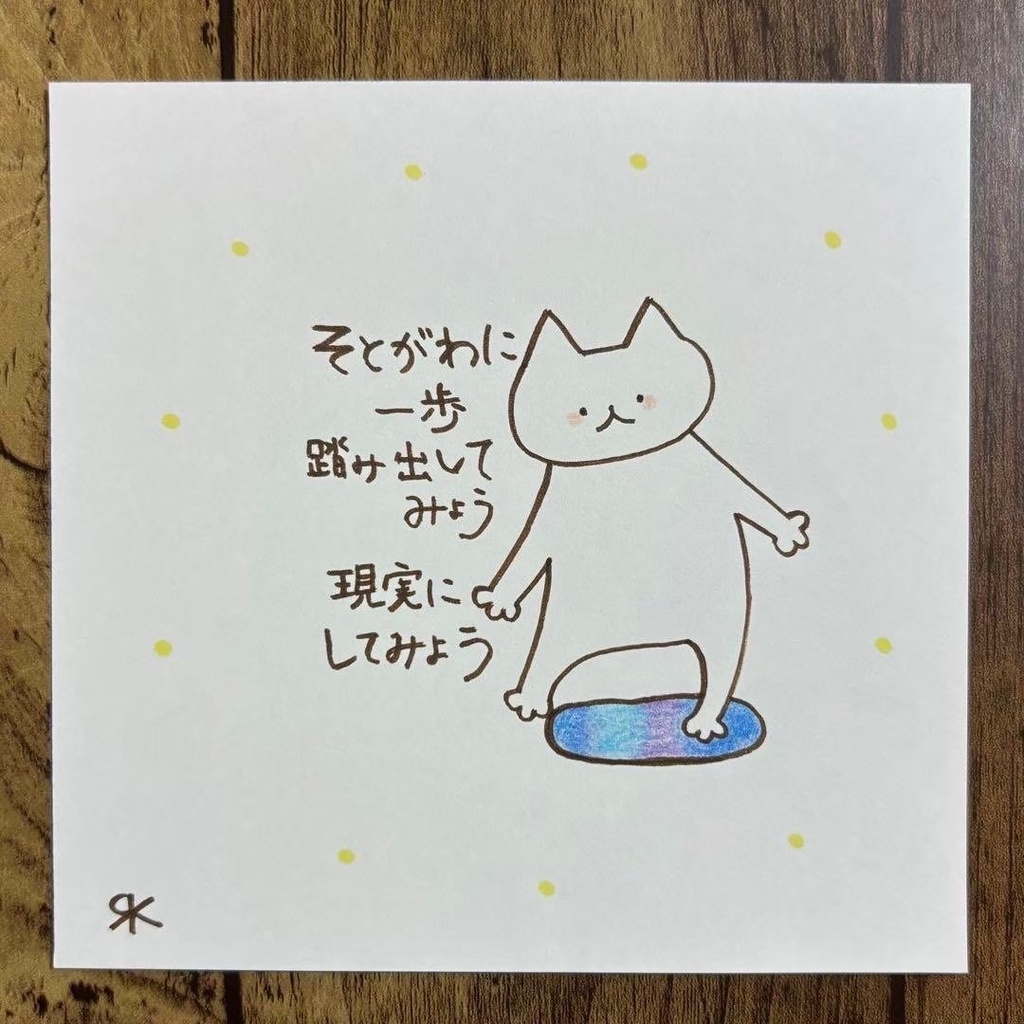 そとがわに
一歩
踏み出して
みよう
現実に
してみよう